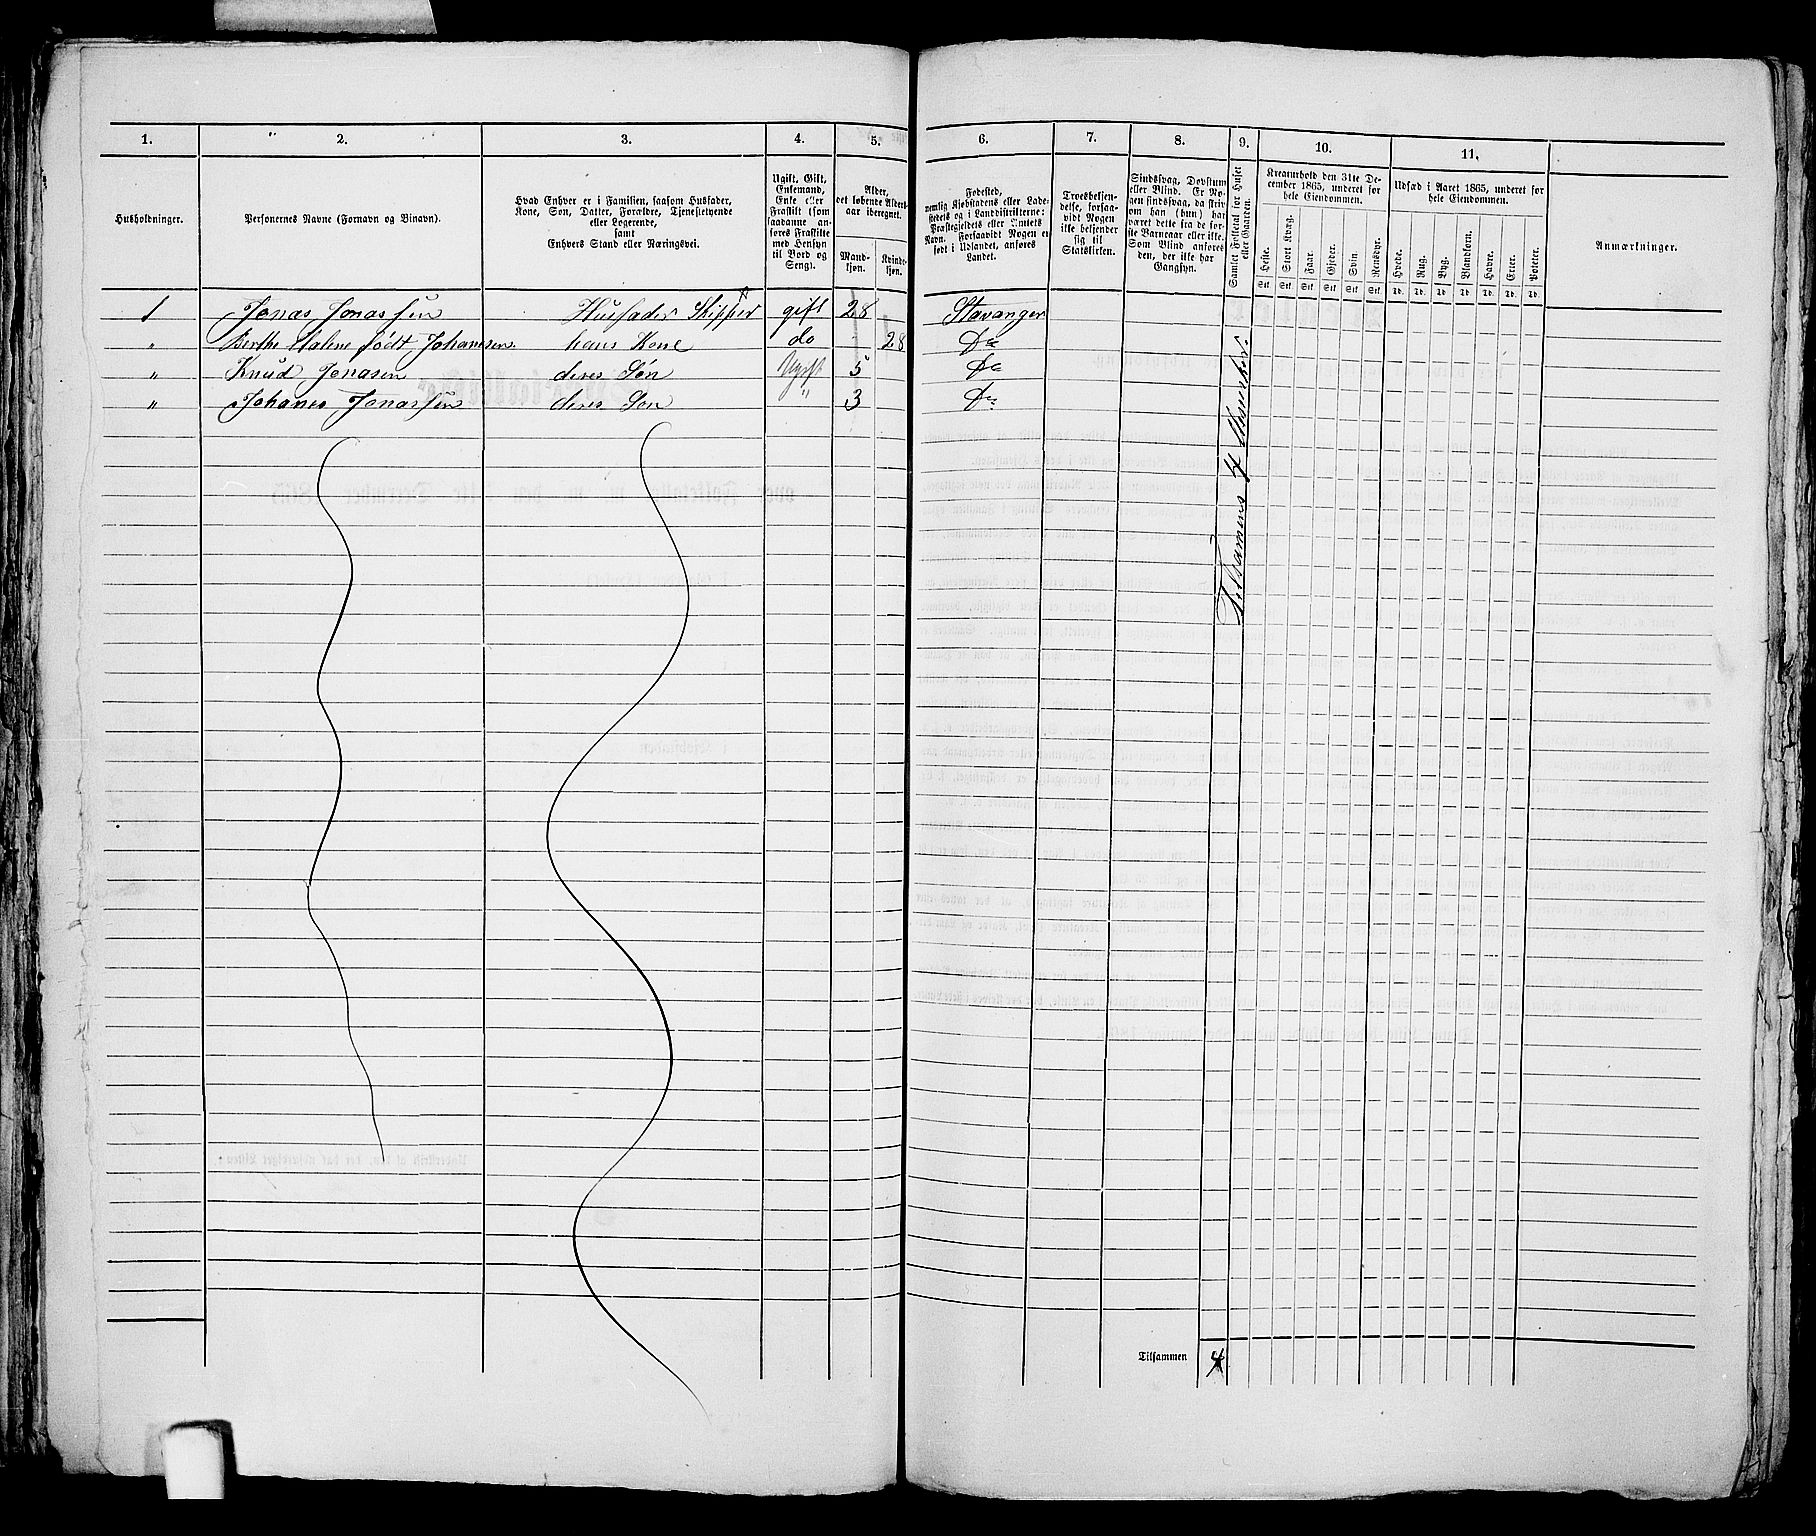 1.
2.
3.
4.
5.
6.
7.
8.
9.
10.
11.
Husholdninger.
Personernes Navne (Fornavn og Binavn).
Hvad Enhver er i Familien, saasom Husfader,
Kone, Søn, Datter, Forældre, Tjenestetyende
eller Logerende,
samt
Enhvers Stand eller Næringsvei.
Ugift, Gift,
Enkemand,
Enke eller
Fraskilt (som
saadanne an-
føres Fraskilte
med Hensyn
til Bord og
Seng).
Alder,
det løbende Alders-
aar iberegnet.
Mand-
kjøn.
Kvinde-
kjøn.
Fødested,
nemlig Kjøbstadens eller Lade-
stedets og i Landdistrikterne:
Præstegjeldets eller Annexets
Navn. Forsaavidt Nogen er
født i Udlandet, anføres
Landet.
Troesbekjen-
delse, forsaa-
vidt Nogen
ikke bekjender
sig til
Statskirken.
Sindssvag, Døvstum
eller Blind. Er No-
gen sindssvag, da skri-
ves om han (hun) har
været dette fra de før-
ste Barneaar eller ikke.
Som Blind anføres
den, der ikke har
Gangsyn.
Samlet Folketal for Huset
eller Gaarden.
Kreaturhold den 31te De-
cember 1865, underet for
hele Eiendommen.
Heste.
Stort Kvæg.
Faar.
Gjeder.
Sviin.
Rensdyr.
Stk. Stk. Stk. Stk. Stk. Stk.
Udsæd i Aaret 1865, underet for
hele Eiendommen.
Hvede.
Rug.
Byg.
Blandkorn.
Havre.
Erter.
Poteter.
Td. Td. Td. Td. Td. Td. Td.
Anmærkninger.
1 Jonas Jonassen Husfader Skipper gift 28 Stavanger
" Berthe Malene født Johansen hans Kone do 28 Do
" Knud Jonasen deres Søn Ugift 5 Do
" Johanes Jonassen deres Søn " 3 Do
Tilsamens 4 Mennesker.
Tilsammen 4